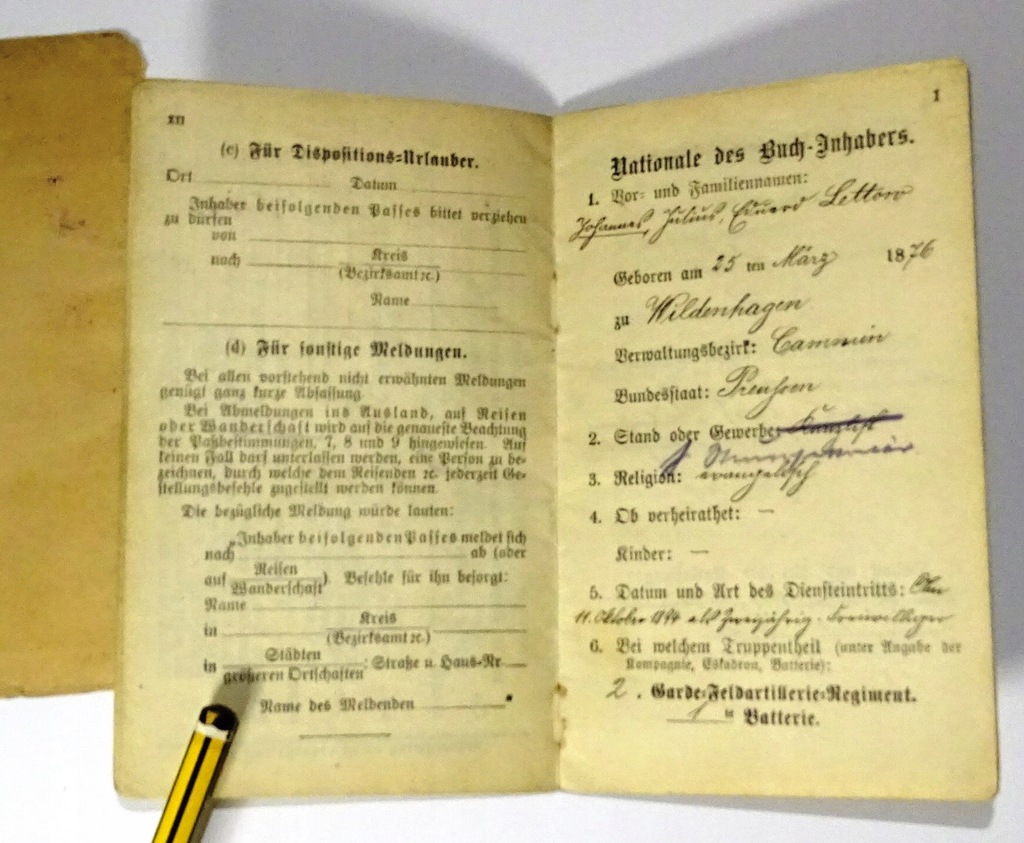 XII
(c) Für Dispositions-Urlauber.
Ort Datum
Inhaber beifolgenden Passes bittet verziehen
zu dürfen
von
nach Kreis
(Bezirksamt ꝛc.)
Name
(d) Für sonstige Meldungen.
Bei allen vorstehend nicht erwähnten Meldungen
genügt ganz kurze Abfassung
Bei Abmeldungen ins Ausland, auf Reisen
oder Wanderschaft wird auf die genaueste Beachtung
der Paßbestimmungen, 7, 8 und 9 hingewiesen. Auf
keinen Fall darf unterlassen werden, eine Person zu be-
zeichnen, durch welche dem Reisenden ꝛc. jederzeit Ge-
stellungsbefehle zugestellt werden können.
Die bezügliche Meldung würde lauten:
„Inhaber beifolgenden Passes meldet sich
nach ab (oder
auf Reisen
Wanderschaft). Befehle für ihn besorgt:
Name
in Kreis
(Bezirksamt ꝛc.)
in Städten
größeren Ortschaften: Straße u. Haus-Nr.
Name des Meldenden
1
Nationale des Buch-Inhabers.
1. Vor- und Familiennamen:
Johannes, Julius, Eduard Lettow
Geboren am 25 ten März 1876
zu Wildenhagen
Verwaltungsbezirk: Cammin
Bundesstaat: Preußen
2. Stand oder Gewerbe: Kanzlist
3. Religion: evangelisch
4. Ob verheirathet: —
Kinder: —
5. Datum und Art des Diensteintritts: Am
11. Oktober 1894 als Zweijährig-Freiwilliger
6. Bei welchem Truppentheil (unter Angabe der
Kompagnie, Eskadron, Batterie):
2. Garde-Feldartillerie-Regiment.
1 te Batterie.